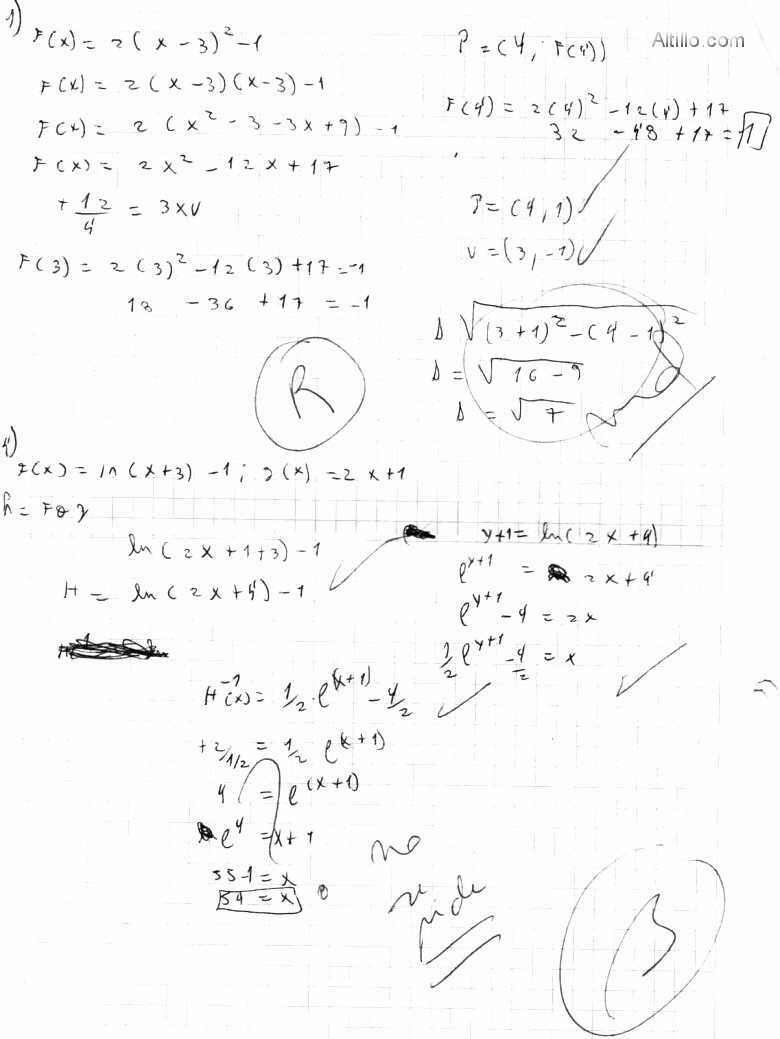 1)
F(x) = 2(x-3)²-1
F(x) = 2(x-3)(x-3)-1
F(x) = 2(x²-3-3x+9)-1
F(x) = 2x²-12x+17
+12/4 = 3xv
F(3) = 2(3)²-12(3)+17=-1
18 -36 +17 = -1
R
Altillo.com
P=(4, F(4))
F(4) = 2(4)²-12(4)+17
32 -48 +17 = 1
P=(4,1)
v=(3,-1)
Δ √(3+1)²-(4-1)²
Δ = √16-9
Δ = √7
4)
F(x) = ln(x+3)-1; g(x) = 2x+1
h = Fog
ln(2x+1+3)-1
H = ln(2x+4)-1
y+1= ln(2x+4)
e^y+1 = 2x+4
e^y+1 -4 = 2x
1/2 e^y+1 -4/2 = x
H^-1(x) = 1/2 . e^(x+1) -4/2
+2/1/2 = 1/2 e^(x+1)
4 = e^(x+1)
e^4 = x+1
55-1=x
54 = x
no
se
pide
3